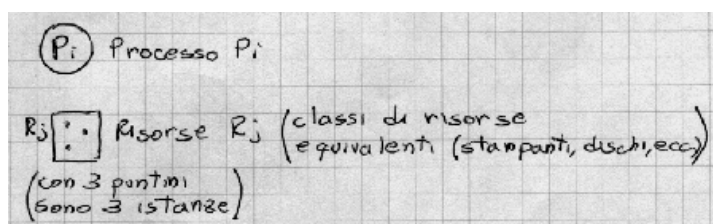 Pi Processo Pi
Rj Risorse Rj (classi di risorse
equivalenti (stampanti, dischi, ecc))
(con 3 puntini
sono 3 istanze)